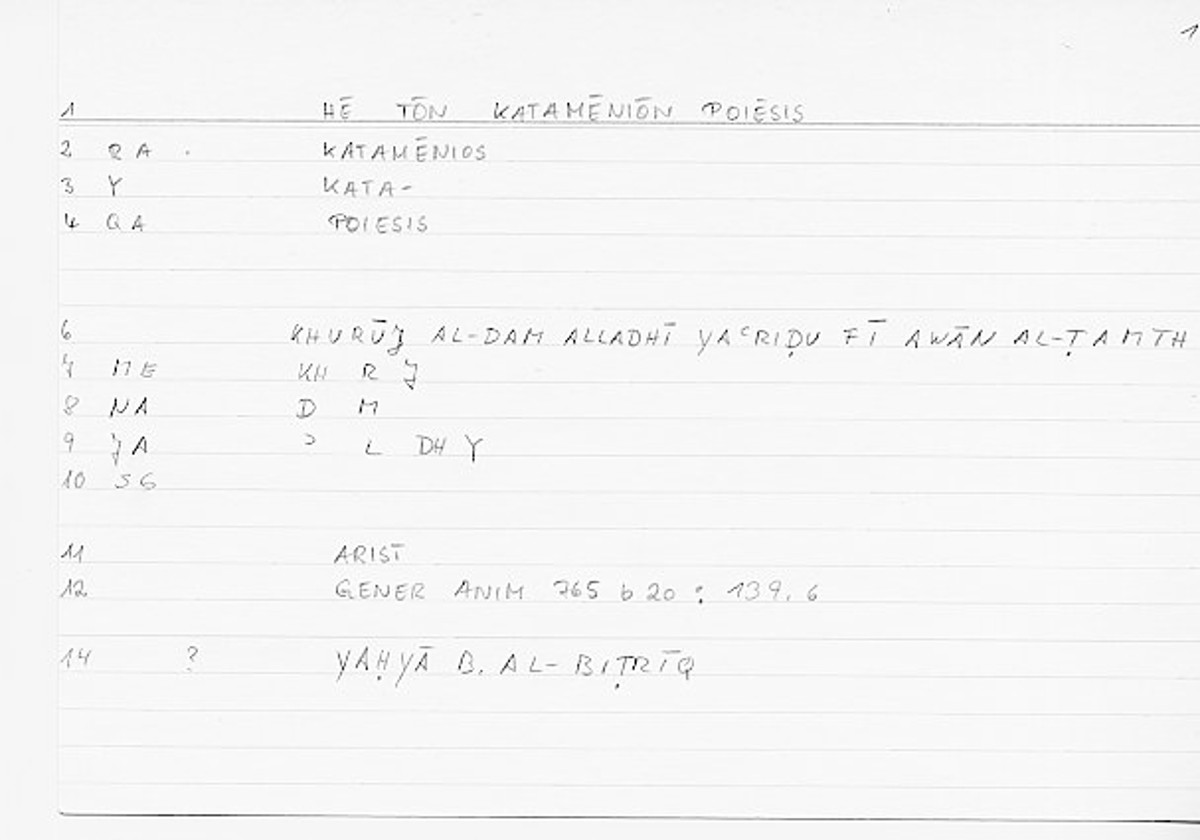 1
1 HĒ TŌN KATAMĒNIŌN POIĒSIS
2 QA . KATAMĒNIOS
3 Y KATA-
4 QA POIESIS
6 KHURŪJ AL-DAM ALLADHĪ YAʿRIḌU FĪ AWĀN AL-ṬAMTH
7 ME KH R J
8 NA D M
9 JA ʾ L DH Y
10 SG
11 ARIST
12 GENER ANIM 765 b 20 : 139.6
14 ? YAḤYĀ B. AL-BIṬRĪQ